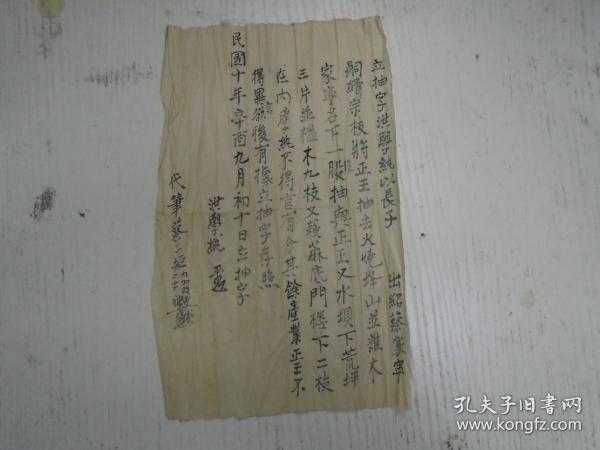 立抽字洪學純以長子
出紹蔡家寧
嗣續宗枝將正玉抽去火燒岺山並雜木
家寧名下一股抽與正玉又水垻下荒坪
三片並榅木九枝又蔴底門楼下二枝
在內學純不得言有分其餘產業正玉不
得異言欲後有據立抽字存照
洪學純
民國十年辛酉九月初十日立抽字
代筆蔡
孔夫子旧书网
www.kongfz.com